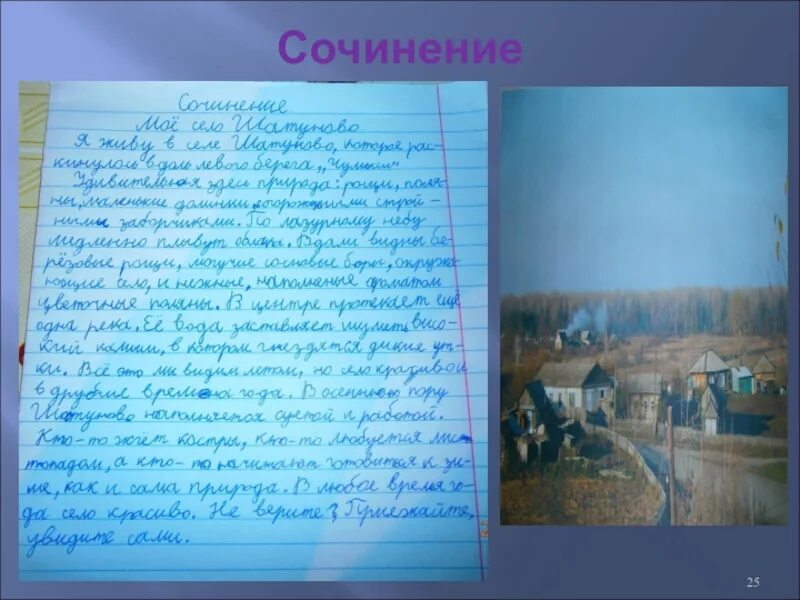 Сочинение
Сочинение
Моё село Шатуново
Я живу в селе Шатуново, которое рас-
кинулось вдоль левого берега „Чумыш"
Удивительная здесь природа: рощи, поля-
ны, маленькие домики, огорожеными строй-
ными заборчиками. По лазурному небу
медленно плывут облака. Вдали видны бе-
рёзовые рощи, могучие сосновые боры, окружа-
ющие село, и нежные, наполненые ароматом
цветочные поляны. В центре протекает ещё
одна река. Её вода заставляет шуметь высо-
кий камыш, в котором гнездятся дикие ут-
ки. Всё это мы видим летом, но село красиво и
в другие времена года. В осеннюю пору
Шатуново наполняется суетой и работой.
Кто-то жжёт костры, кто-то любуется лис
топадом, а кто-то начинают готовиться к зи-
ме, как и сама природа. В любое время го-
да село красиво. Не верите? Приезжайте,
увидите сами.
25